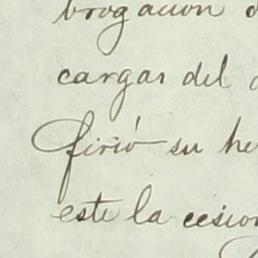 brogacion
cargas del
firió su he
este la cesion